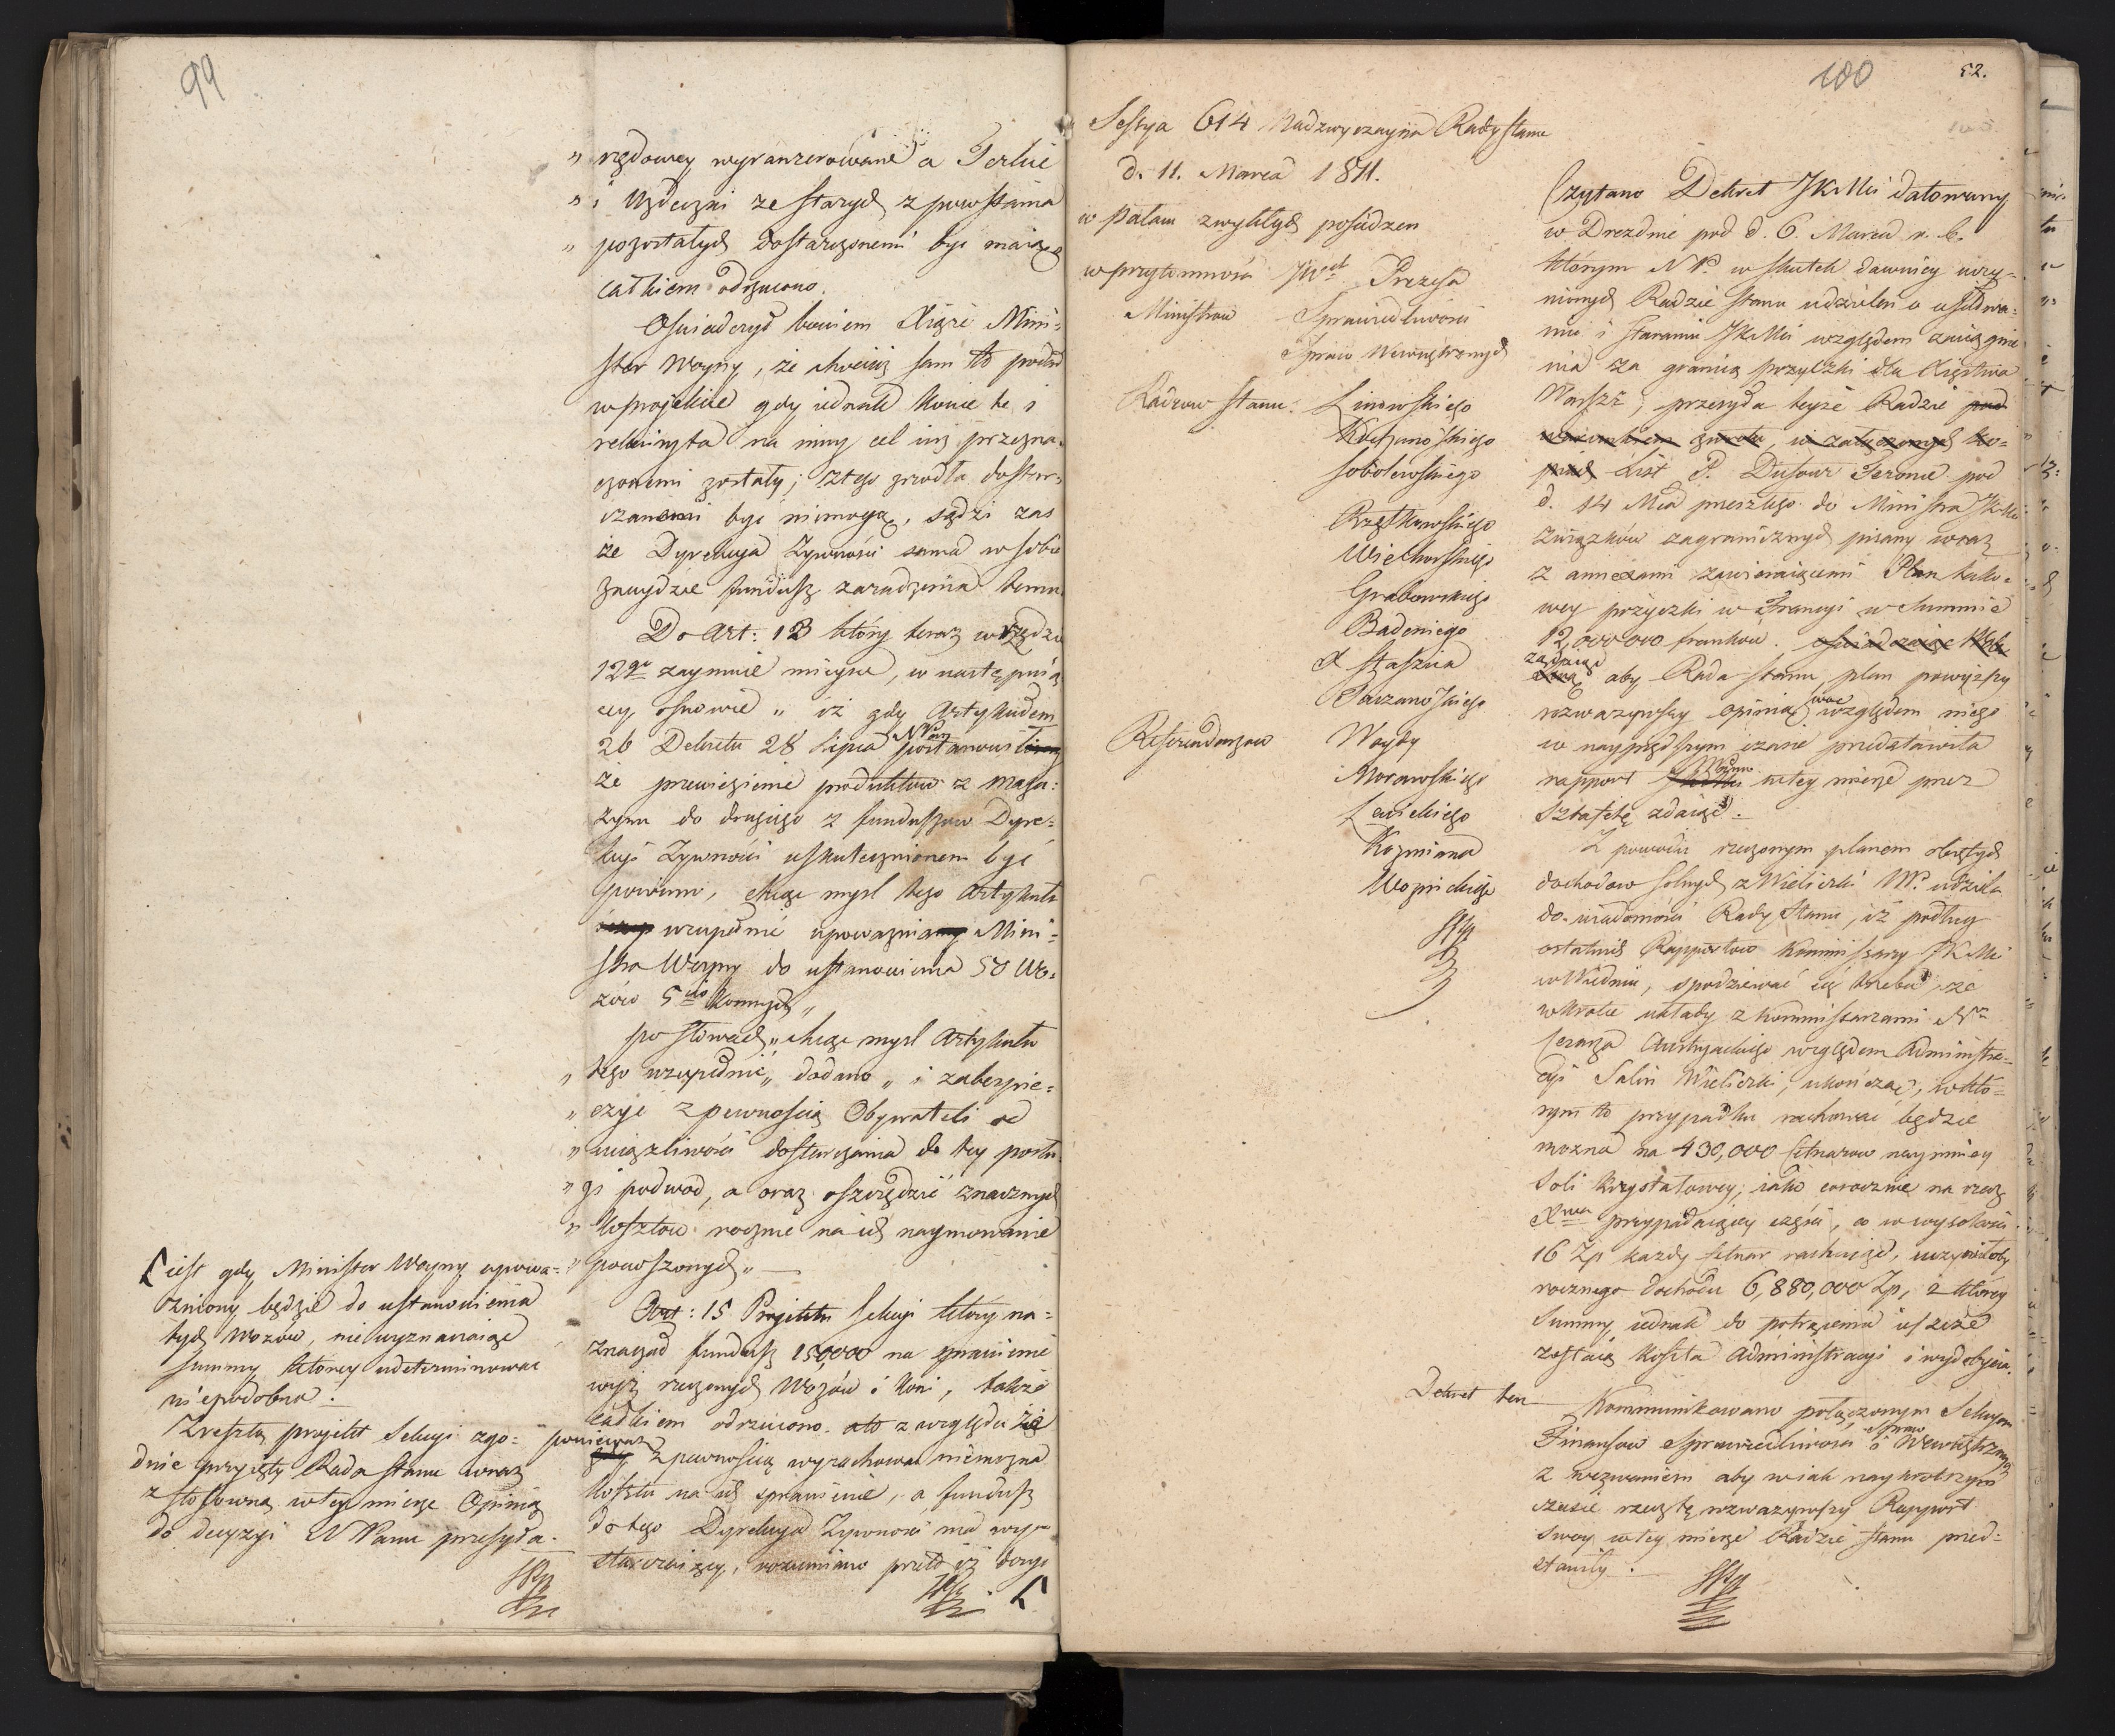 99
" rządowey wyranżerowane a Terlice
" i Uzdeczki ze starych z powstania
" pozostałych dostarczonemi być maią
całkiem odrzucono.
Oświadczył bowiem Xiąże Mini=
ster Woyny, że chociaż sam to podał
w projekcie gdy iednak konie te i
rekwizyta na inny cel iuż przezna=
czonemi zostały; z tego zrzodła dostar=
czanemi być niemogą, sądzi zaś
że Dyrekcya Żywności sama w sobie
znaydzie fundusz zaradzenia temu.
Do Art: 13 który teraz w rzędzie
12go zaymuie mieysce, w następuią
cey osnowie " iż gdy Artykułem
26 Dekretu 28 Lipca NPan postanowił
że przewiezienie produktow z maga=
zynu do drugiego z funduszow Dyre=
kcyi Żywności uskutecznionem być
powinno, chcąc myśl tego Artykułu
uzupełnić upoważnia Mini=
stra Woyny do ustanowienia 50 Wo=
zów 5cio konnych "
po słowach " chcąc myśl Artykułu
" tego uzupełnić " dodano " i zabezpie=
" czyć z pewnością Obywateli od
" uciążliwości dostarczania do tey posłu=
" gi podwod, a oraz oszczędzić znacznych
" kosztow rocznie na ich naymowanie
" ponoszonych " —
Art: 15 Projektu Sekcyi który na=
znaczał fundusz 150,000 na sprawienie
wyż rzeczonych Wozów i koni, także
całkiem odrzucono. ato z względu że
ponieważ z pewnością wyrachować niemożna
kosztu na ich sprawienie, a fundusz
do tego Dyrekcya Żywności ma wy=
starczaiący, rozumiano przeto iż dosyć
iest gdy Minister Woyny upowa=
żniony będzie do ustanowienia
tych Wozów, nie wyznaczaiąc
summy, którey udeterminować
niepodobna.
Zresztą projekt Sekcyi zgo=
dnie przyięty Rada Stanu wraz
z stosowną w tey mierze Opinią
do decyzyi N Pana przesyła.
100
52.
Sessya 614 Nadzwyczayna Rady Stanu
d. 11. Marca 1811.
w Pałacu zwykłych posiedzeń
w przytomności JWch Prezesa
Ministrow Sprawiedliwości
Spraw Wewnętrznych
Radzcow Stanu. Linowskiego
Kochanowskiego
Sobolewskiego
Rzętkowskiego
Wielhorskiego
Grabowskiego
Badeniego
X Staszica
Referendarzow Woydy
Morawskiego
Kozmiana
Woznickiego
Czytano Dekret JKMci datowany
w Dreznie pod d. 6. Marca r. b.
którym NP. w skutek dawniey uczy=
nionych Radzie Stanu udzieleń o usiłowa=
niu i staraniu JKMci względem zaciągnie
nia za granicą pożyczki dla Xięstwa
Warszo; przesyła teyże Radzie pod
warunkiem zwrotu, w załączonych ko=
piach List P. Dufour Feronce pod
d. 14 Mca przeszłego do Ministra JKMci
Związków zagranicznych pisany wraz
z annexami zawieraiącemi Plan tako=
wey pożyczki w Francyi w Summie
12,000000 frankow.
żądaiąc aby Rada Stanu, plan powyższy
rozważywszy opinią swoię względem niego
w nayprędszym czasie przedstawiła
rapport w tey mierze przez
Sztafetę zdaiąc.
Z powodu rzeczonym planem obiętych
dochodow solnych z Wieliczki NP. udziela
do wiadomości Rady Stanu, iż podług
ostatnich Rapportow Kommissarzy JKMci
w Wiedniu, spodziewać się trzeba, że
wkrotce układy z Kommissarzami Ngo
Cesarza Austryackiego względem Administra=
cyi Salin Wieliczki, ukończą, w któ=
rym to przypadku rachować będzie
można na 430,000 Cetnarow nayniniey
Soli kryształowey, iako corocznie na rzecz
Xtwa przypadaiącey części, co w wysokości
16 Zp każdy Cetnar rachuiąc, uczyniłoby
rocznego dochodu 6,880,000 Zp, z którey
Summy iednak do potrącenia ieszcze
zostaią koszta Administracyi i wydobycia.
Dekret ten Kommunikowano połączonym Sekcyom
Finansow Sprawiedliwości i Spraw Wewnętrznych
z wezwaniem aby w iak naykrotszym
czasie rzecz tę rozważywszy Rapport
swoy w tey mierze Radzie Stanu przed=
stawiły.